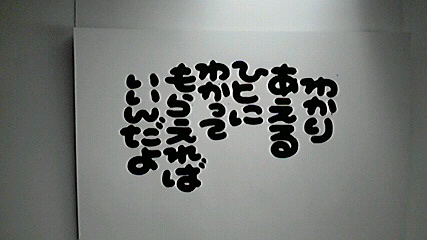 わかり
あえる
ひとに
わかって
もらえれば
いいんだよ